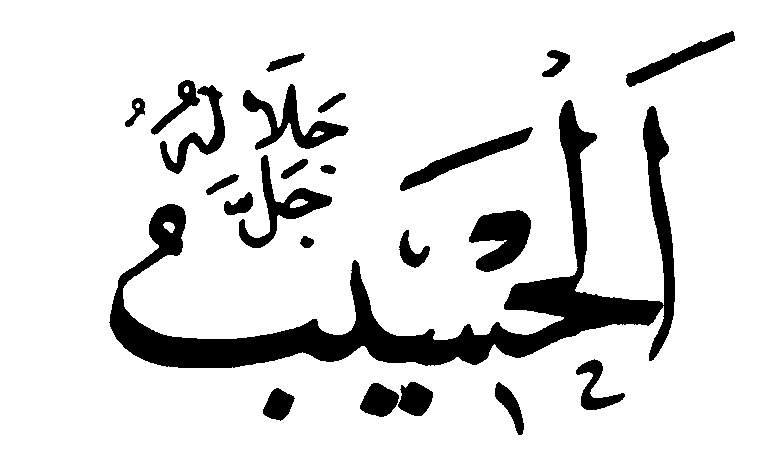 اَلْحَسِيبُ
جَلَّ جَلَالُهُ